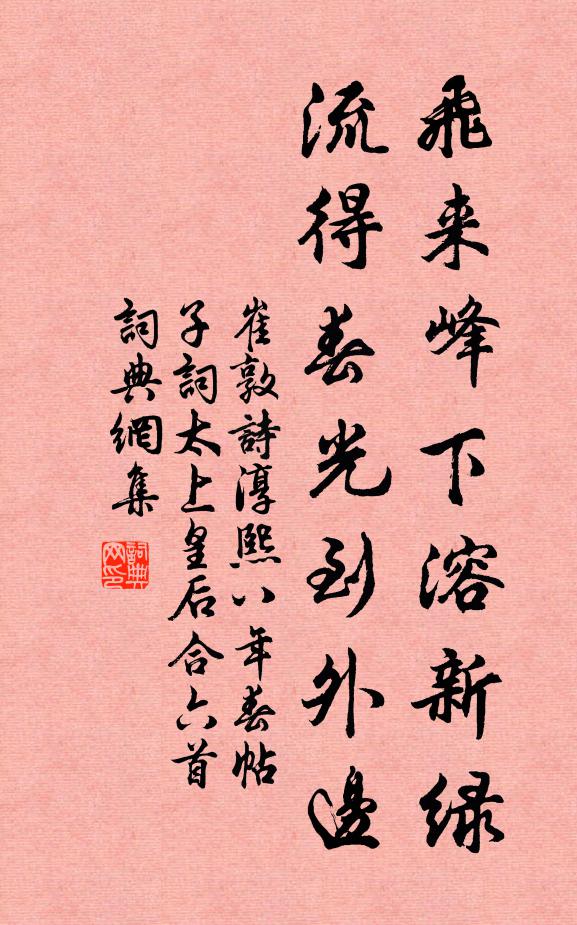 飛来峰下溶新緑
流得春光到外邊
崔敦詩淳熙八年春帖
子詞太上皇后合六首
詞典網集
詞典
网印